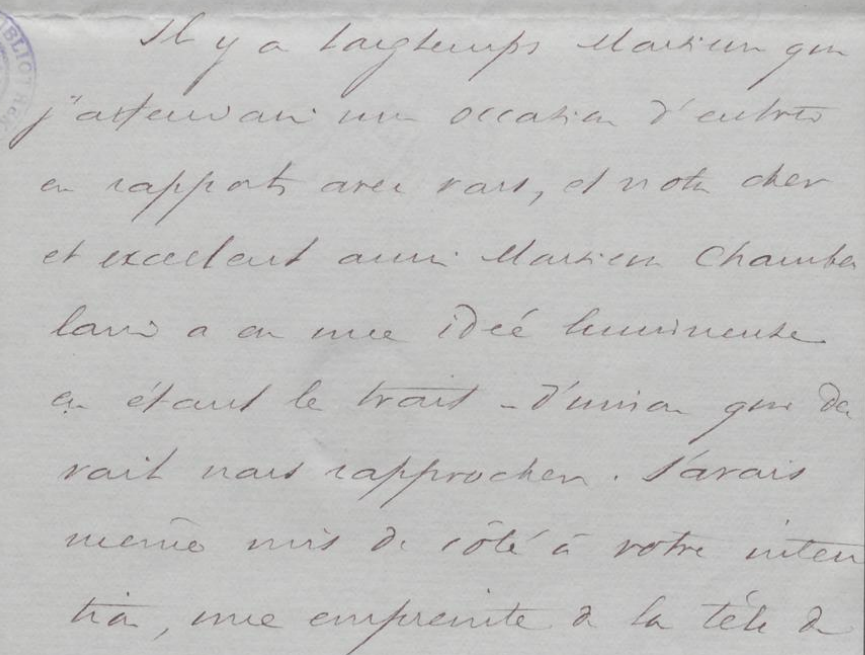 Il y a longtemps Monsieur que
j'attendais une occasion d'entrer
en rapports avec vous, et notre cher
et excellent ami Monsieur Chamber
lain a eu une idée lumineuse
en étant le trait-d'union que de
vait nous rapprocher. J'avais
même mis de côté à votre inten
tion, une empreinte de la tête de